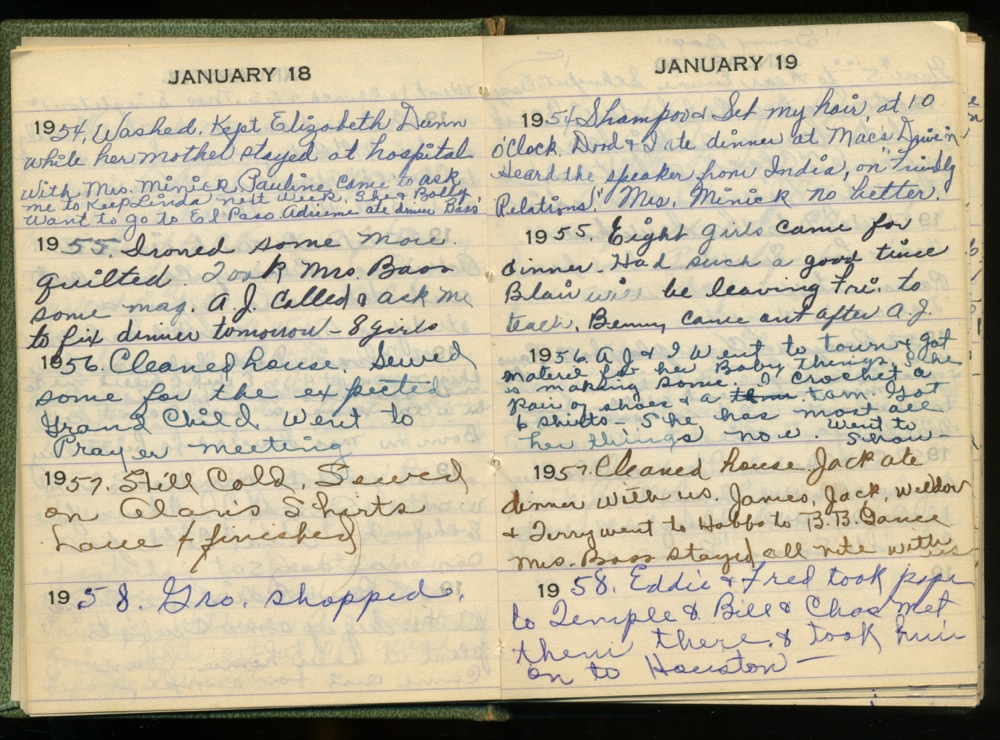 JANUARY 18
1954, Washed. Kept Elizabeth Dunn
while her mother stayed at hospital
with Mrs. Minick. Pauline came to ask
me to Keep Linda next week. She & Bolly
want to go to El Paso. Adrieme ate dinner Bass'
1955. Ironed some more.
quilted. Took Mrs. Bass
some mag. A.J. Called & ask me
to fix dinner tomorrow - 8 girls
1956. Cleaned house. Sewed
some for the expected
Grand Child. Went to
Prayer meeting
1957. Still Cold. Sewed
on Alans Shirts
(one finished)
1958. Gro. shopped.
JANUARY 19
1954 Shampoo & Set my hair, at 10
O'Clock. Dood & I ate dinner at Mac's Drive in
Heard the speaker from India, on "Friendly
Relations" Mrs. Minick no better.
1955. Eight girls came for
dinner. Had such a good time
Blair will be leaving Fri. to
teach. Benny came out after A.J.
1956. A.J. & I went to town & got
material for her Baby things, & she
is making some. I crochet a
pair of shoes & a tam. Got
6 shirts - She has most all
her things now. Went to
Show -
1957. Cleaned house. Jack ate
dinner with us. James, Jack, Weldon
& Terry went to Hobbs to B.B. Game
Mrs. Bass stayed all nite with us
1958. Eddie & Fred took papa
to Temple & Bill & Chas met
them there & took him
on to Houston -